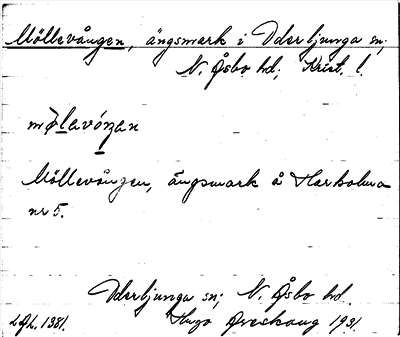 Möllevången, ängsmark i Oderljunga sn;
N. Åsbo hd; Krist. l.
møllavóŋan
Möllevången, ängsmark å Harholma
nr 5.
Oderljunga sn; N. Åsbo hd.
1381. Hugo Areskoug 1931.